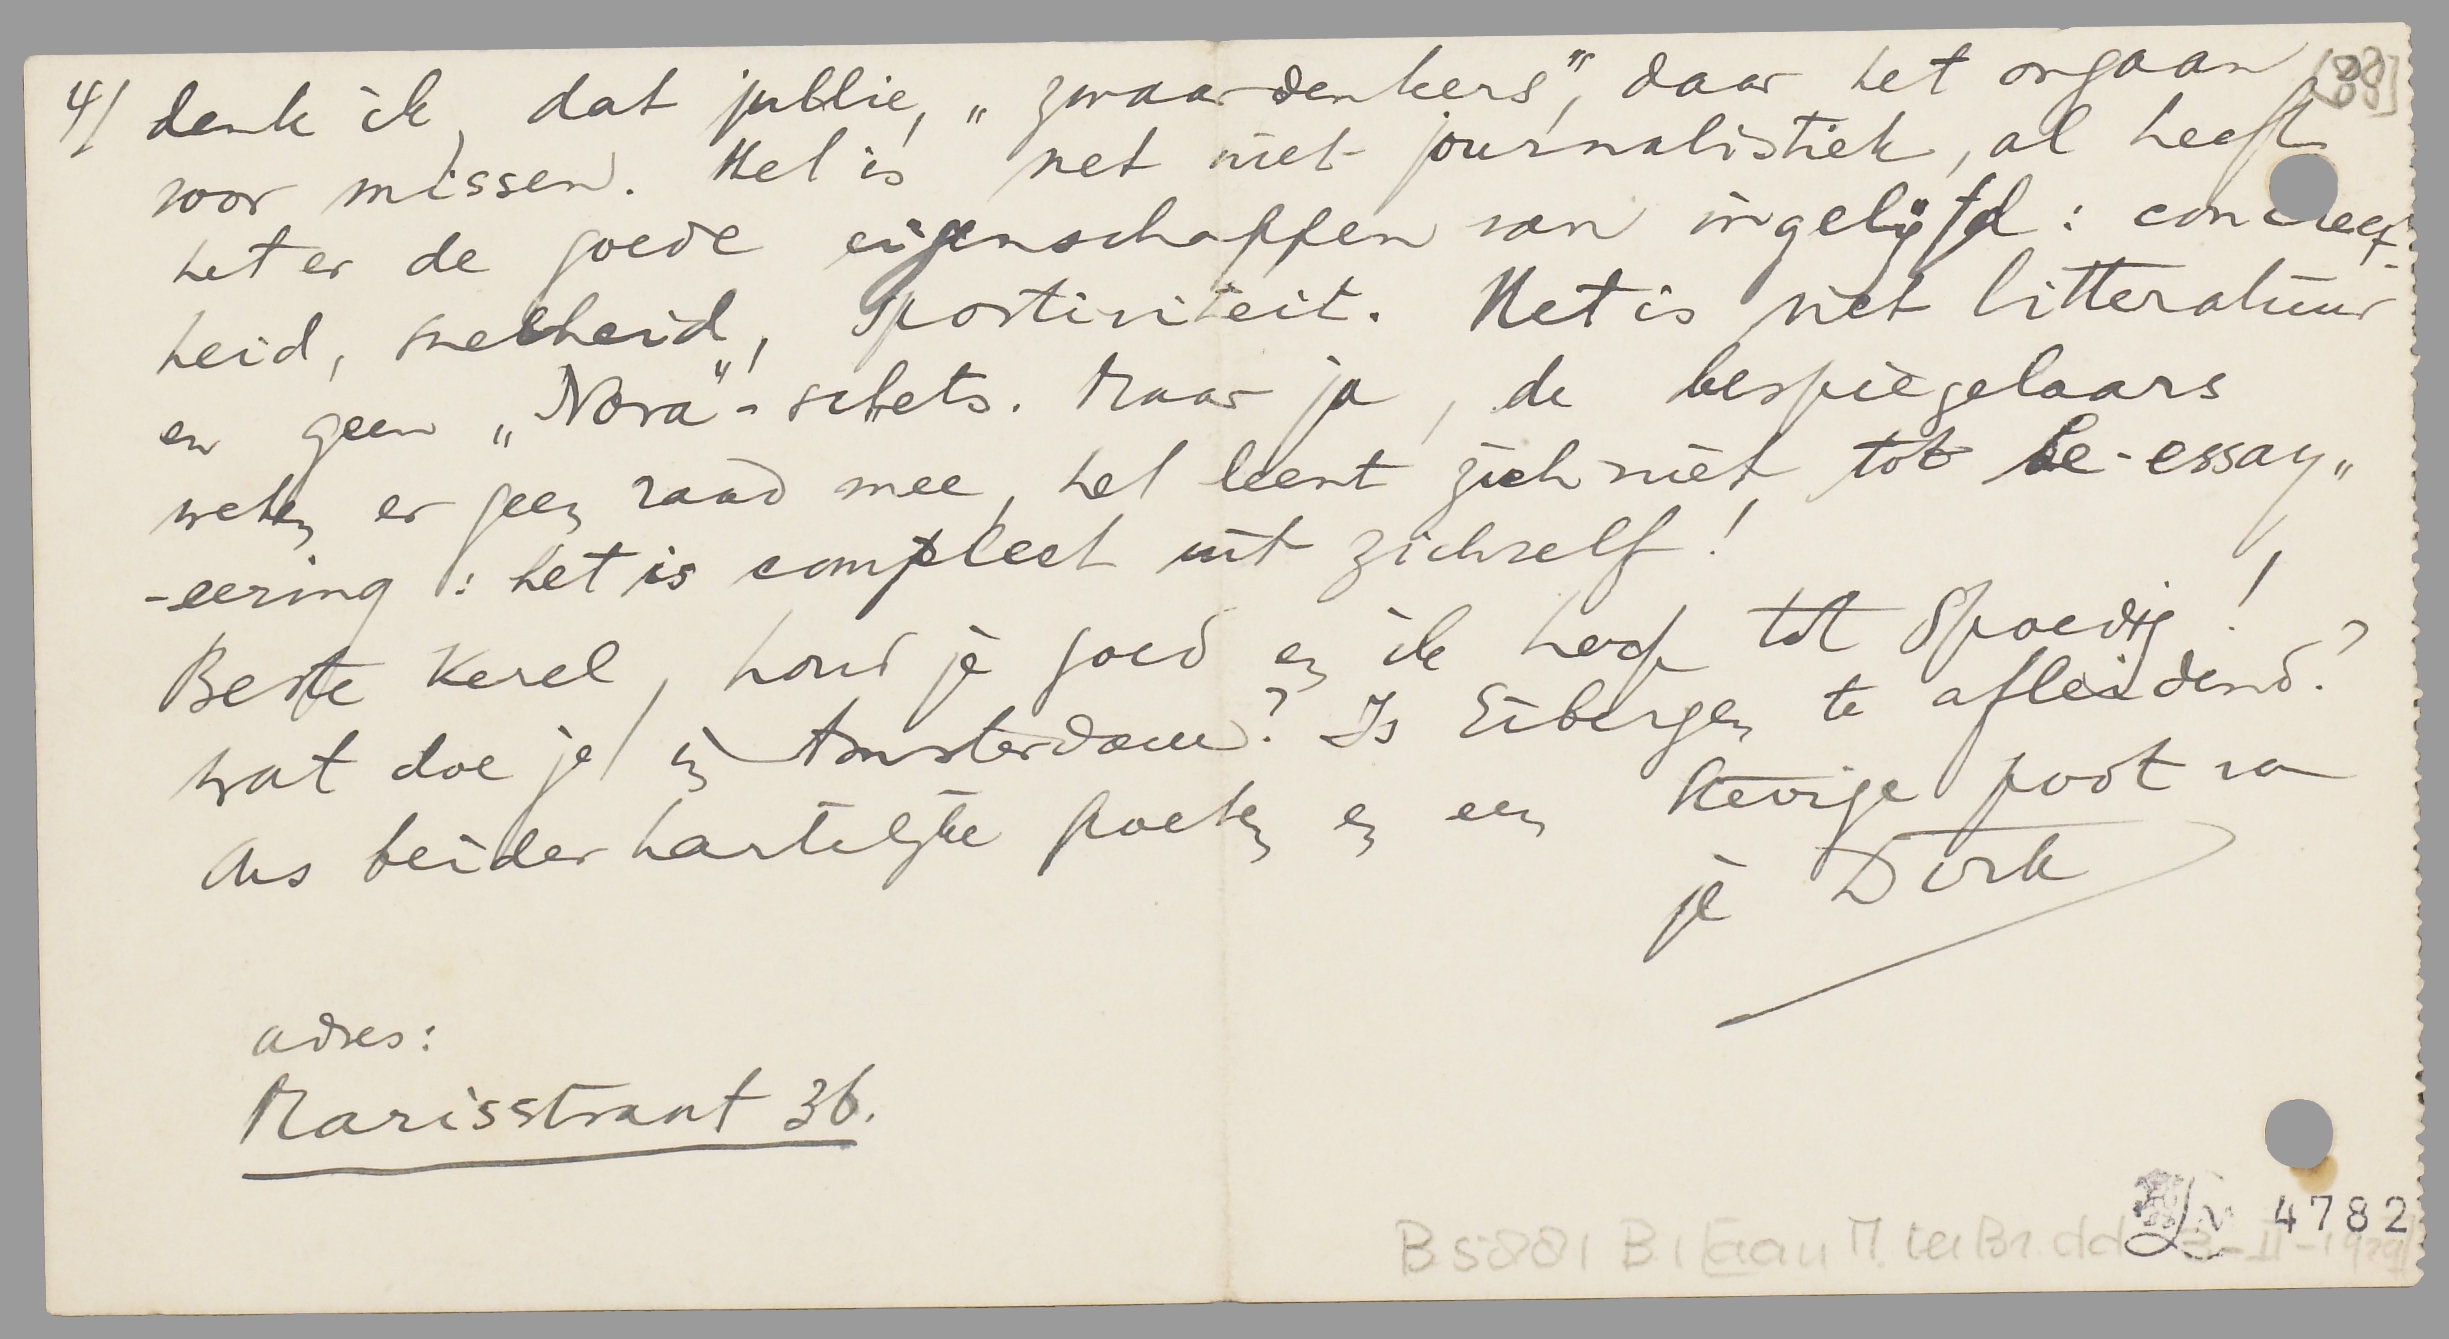 4/ denk ik, dat jullie, „zwaardenkers”, daar het orgaan [88]
voor missen. Het is net niet journalistiek, al heeft
het er de goede eigenschappen van ingelijfd: concreet-
heid, snelheid, sportiviteit. Het is niet litteratuur
en geen „Nora”-schets. Maar ja, de bespiegelaars
weten er geen raad mee, het leent zich niet tot be-essay„
-eering: het is compleet uit zichzelf!
Beste Kerel, houd je goed en ik hoop tot spoedig!
wat doe je in Amsterdam? Is Eibergen te afleidend?
Ons beider hartelijke groeten en een stevige poot van
je Dirk
adres:
Marisstraat 36.
4782
B 5881 B 1 [aan M. ter Br. dd. 3-II-1929]